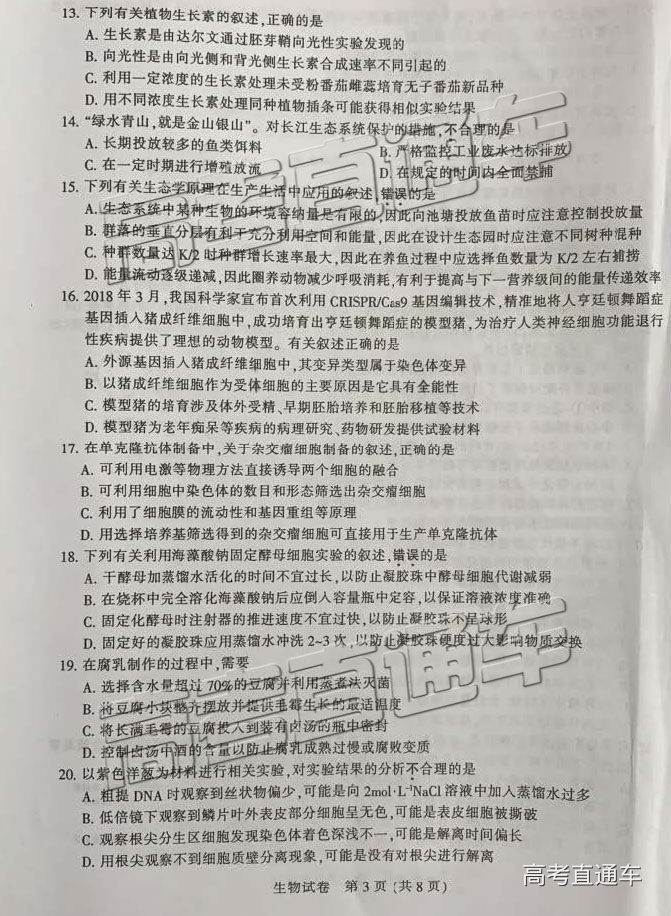 13. 下列有关植物生长素的叙述,正确的是
A. 生长素是由达尔文通过胚芽鞘向光性实验发现的
B. 向光性是由向光侧和背光侧生长素合成速率不同引起的
C. 利用一定浓度的生长素处理未受粉番茄雌蕊培育无子番茄新品种
D. 用不同浓度生长素处理同种植物插条可能获得相似实验结果
14. “绿水青山,就是金山银山”。对长江生态系统保护的措施,不合理的是
A. 长期投放较多的鱼类饵料 B. 严格监控工业废水达标排放
C. 在一定时期进行增殖放流 D. 在规定的时间内全面禁捕
15. 下列有关生态学原理在生产生活中应用的叙述,错误的是
A. 生态系统中某种生物的环境容纳量是有限的,因此向池塘投放鱼苗时应注意控制投放量
B. 群落的垂直分层有利于充分利用空间和能量,因此在设计生态园时应注意不同树种混种
C. 种群数量达 K/2 时种群增长速率最大,因此在养鱼过程中应选择鱼数量为 K/2 左右捕捞
D. 能量流动逐级递减,因此圈养动物减少呼吸消耗,有利于提高与下一营养级间的能量传递效率
16. 2018 年 3 月,我国科学家宣布首次利用 CRISPR/Cas9 基因编辑技术,精准地将人亨廷顿舞蹈症
基因插入猪成纤维细胞中,成功培育出亨廷顿舞蹈症的模型猪,为治疗人类神经细胞功能退行
性疾病提供了理想的动物模型。有关叙述正确的是
A. 外源基因插入猪成纤维细胞中,其变异类型属于染色体变异
B. 以猪成纤维细胞作为受体细胞的主要原因是它具有全能性
C. 模型猪的培育涉及体外受精、早期胚胎培养和胚胎移植等技术
D. 模型猪为老年痴呆等疾病的病理研究、药物研发提供试验材料
17. 在单克隆抗体制备中,关于杂交瘤细胞制备的叙述,正确的是
A. 可利用电激等物理方法直接诱导两个细胞的融合
B. 可利用细胞中染色体的数目和形态筛选出杂交瘤细胞
C. 利用了细胞膜的流动性和基因重组等原理
D. 用选择培养基筛选得到的杂交瘤细胞可直接用于生产单克隆抗体
18. 下列有关利用海藻酸钠固定酵母细胞实验的叙述,错误的是
A. 干酵母加蒸馏水活化的时间不宜过长,以防止凝胶珠中酵母细胞代谢减弱
B. 在烧杯中完全溶化海藻酸钠后应倒入容量瓶中定容,以保证溶液浓度准确
C. 固定化酵母时注射器的推进速度不宜过快,以防止凝胶珠不是球形
D. 固定好的凝胶珠应用蒸馏水冲洗 2~3 次,以防止凝胶珠硬度过大影响物质交换
19. 在腐乳制作的过程中,需要
A. 选择含水量超过 70%的豆腐并利用蒸煮法灭菌
B. 将豆腐小块整齐摆放并提供毛霉生长的最适温度
C. 将长满毛霉的豆腐投入到装有卤汤的瓶中密封
D. 控制卤汤中酒的含量以防止腐乳成熟过慢或腐败变质
20. 以紫色洋葱为材料进行相关实验,对实验结果的分析不合理的是
A. 粗提 DNA 时观察到丝状物偏少,可能是向 2mol·L⁻¹NaCl 溶液中加入蒸馏水过多
B. 低倍镜下观察到鳞片叶外表皮部分细胞呈无色,可能是表皮细胞被撕破
C. 观察根尖分生区细胞发现染色体着色深浅不一,可能是解离时间偏长
D. 用根尖观察不到细胞质壁分离现象,可能是没有对根尖进行解离
生物试卷 第 3 页 (共 8 页)
高考直通车
高考直通车
高考直通车